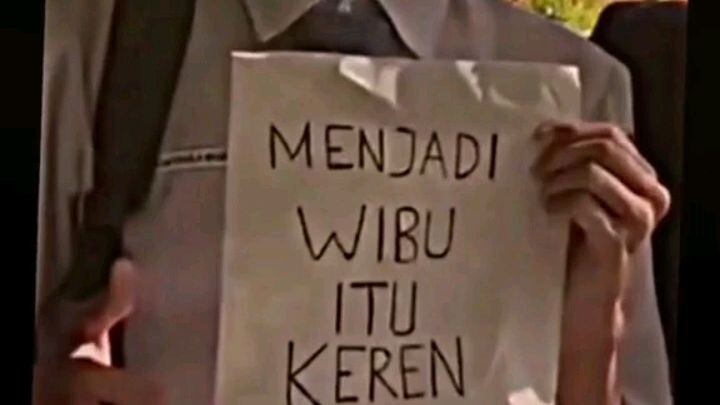 MENJADI
WIBU
ITU
KEREN